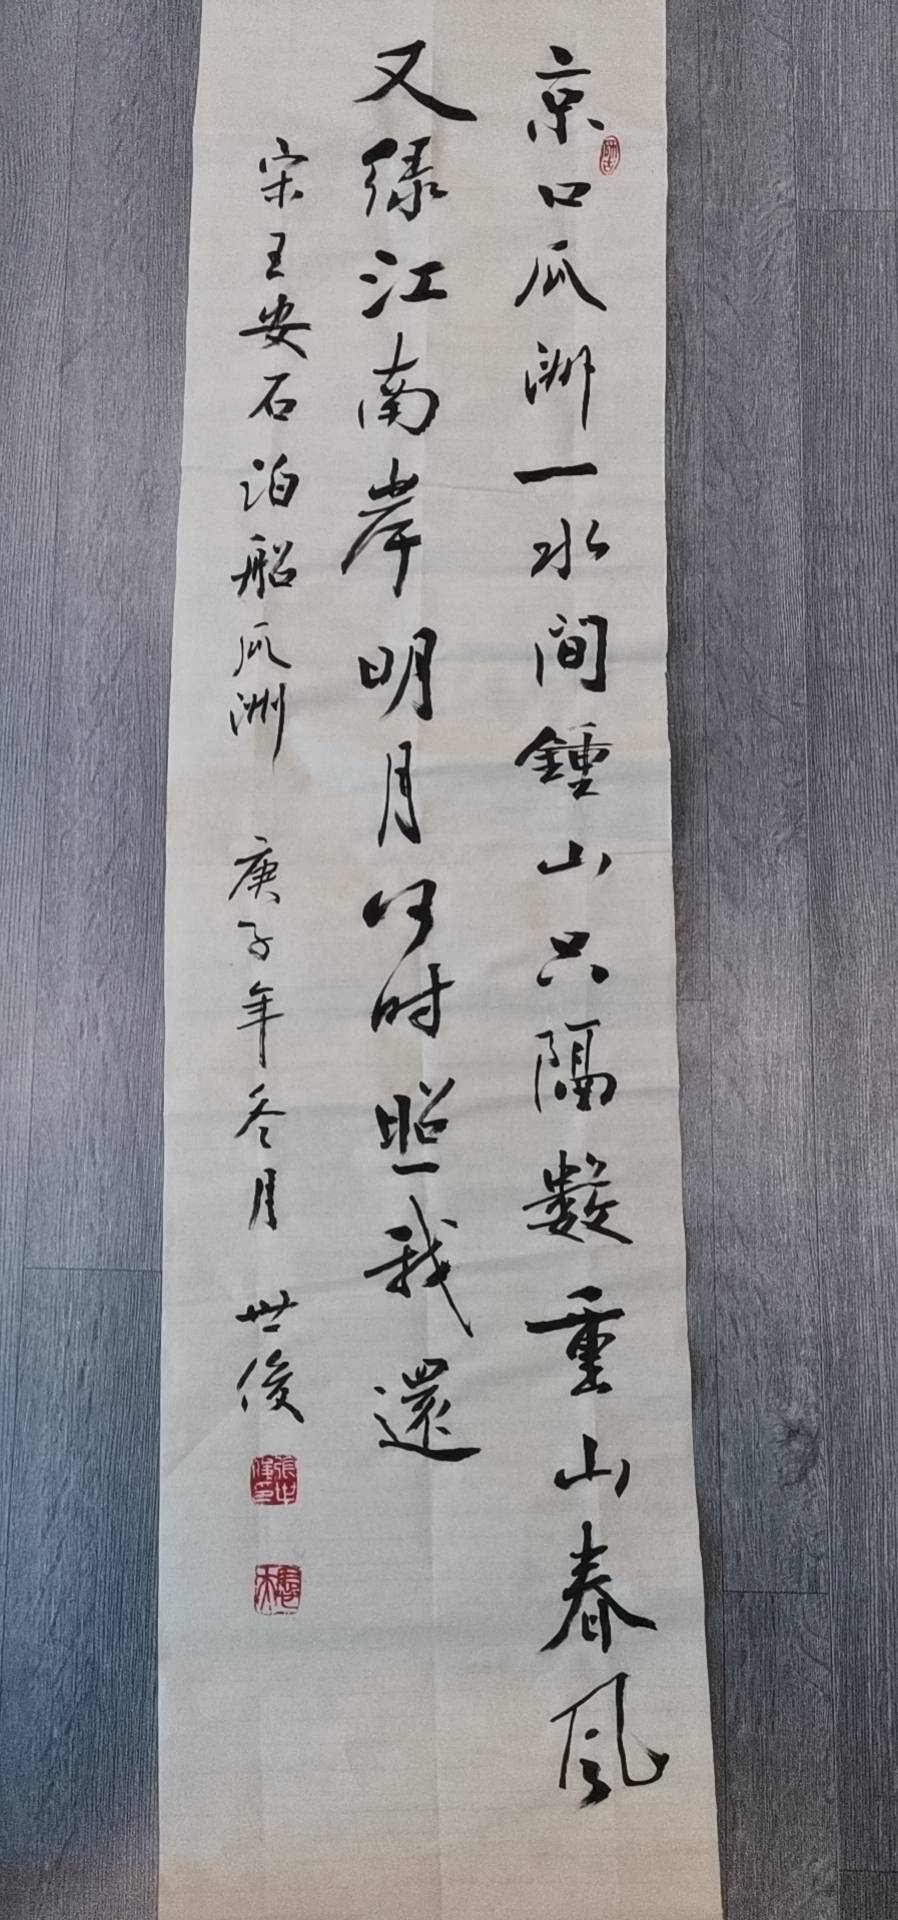 京口瓜洲一水间鍾山只隔数重山春风
又绿江南岸明月何时照我還
宋王安石泊船瓜洲 庚子年冬月 世俊